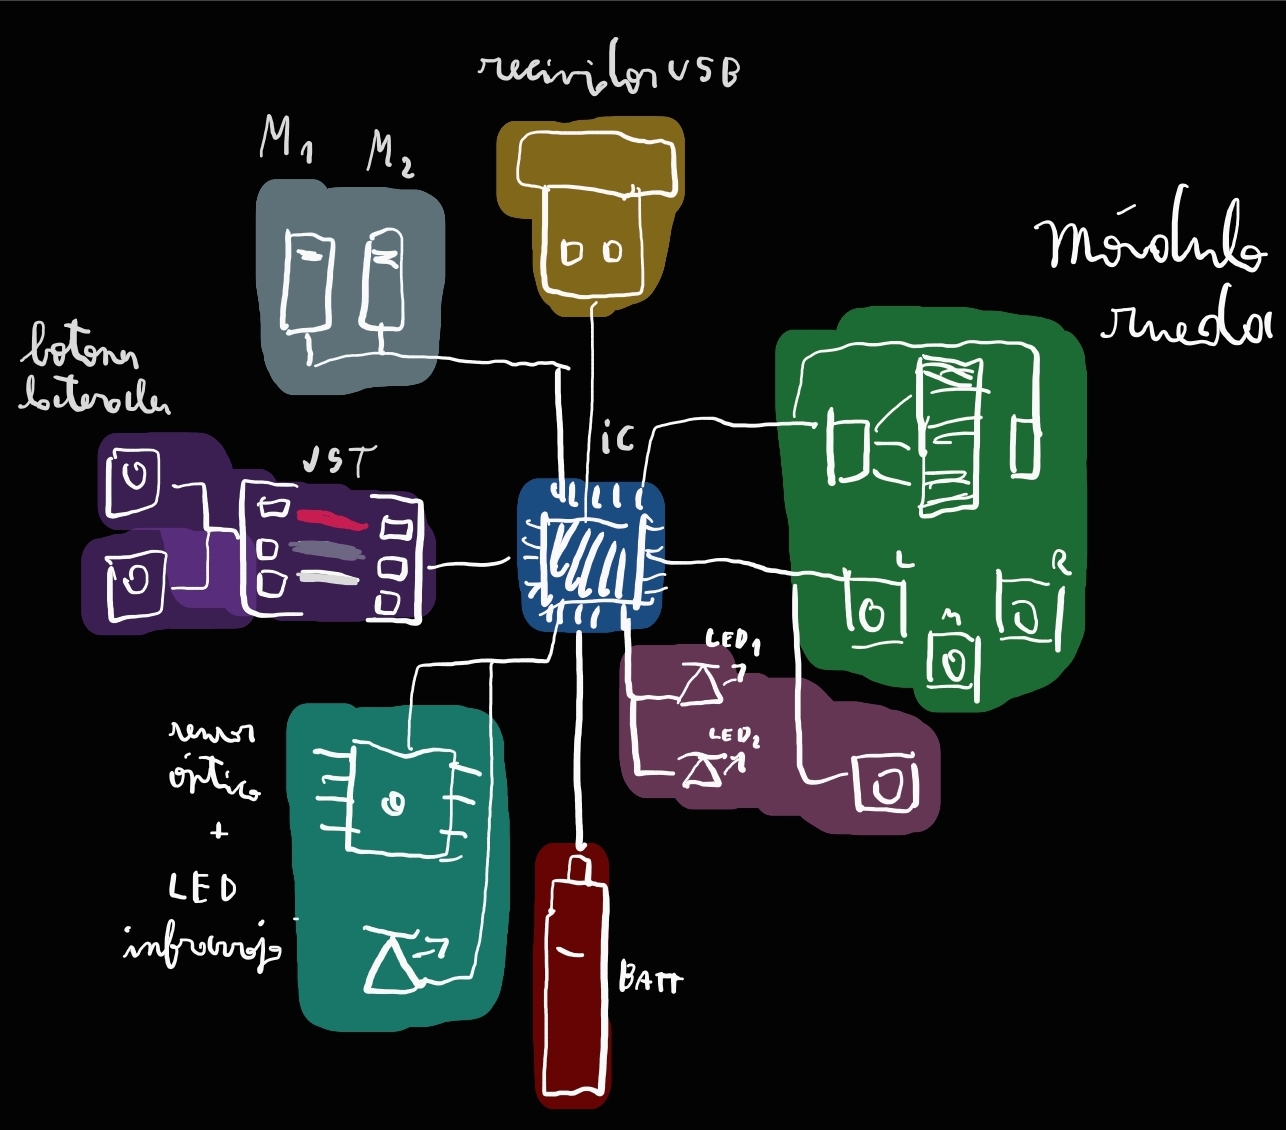 recividor USB
M1
M2
módulo
rueda
botones
laterales
JST
iC
L
R
M
LED1
LED2
sensor
óptico
+
LED
infrarrojo
BATT